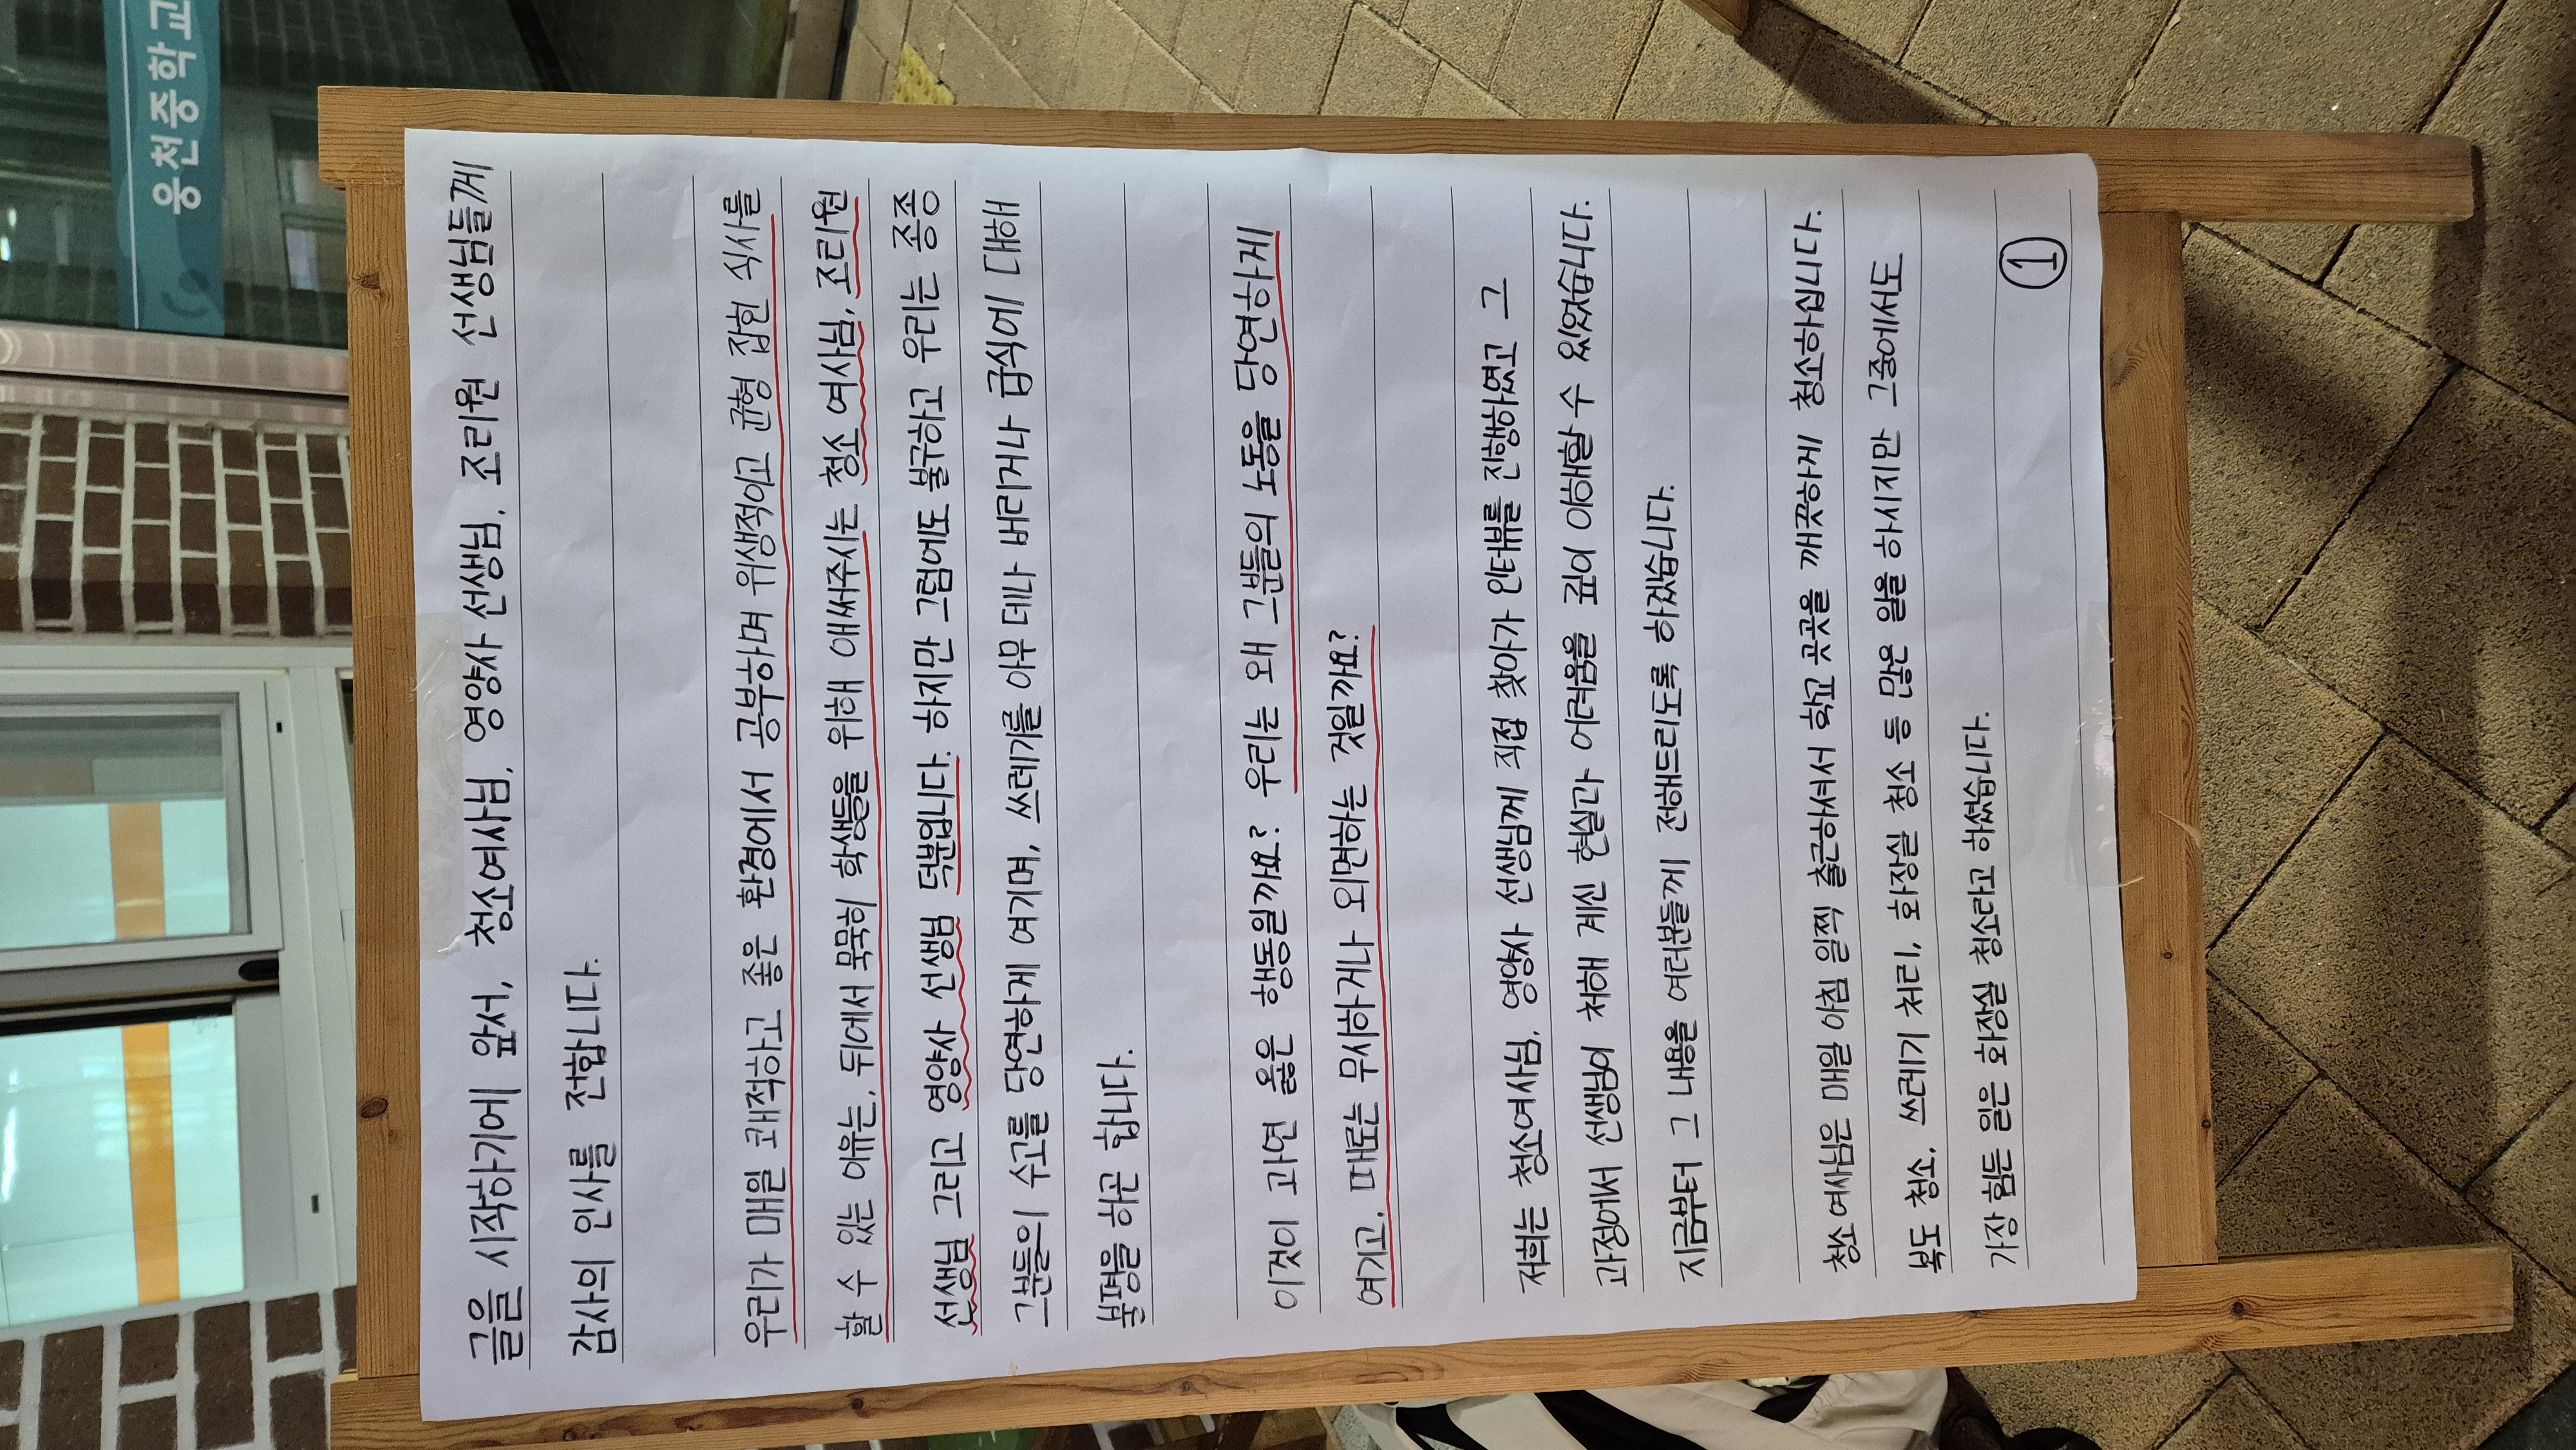 웅천중학교
글을 시작하기에 앞서, 청소여사님, 영양사 선생님, 조리원 선생님들께
감사의 인사를 전합니다.
우리가 매일 쾌적하고 좋은 환경에서 공부하며 위생적이고 균형 잡힌 식사를
할 수 있는 이유는, 뒤에서 묵묵히 학생들을 위해 애써주시는 청소 여사님, 조리원
선생님 그리고 영양사 선생님 덕분입니다. 하지만 그럼에도 불구하고 우리는 종종
그분들의 수고를 당연하게 여기며, 쓰레기를 아무 데나 버리거나 급식에 대해
불평을 하곤 합니다.
이것이 과연 옳은 행동일까요? 우리는 왜 그분들의 노동을 당연하게
여기고, 때로는 무시하거나 외면하는 것일까요?
저희는 청소여사님, 영양사 선생님께 직접 찾아가 인터뷰를 진행하였고 그
과정에서 선생님이 처해 계신 현실과 어려움을 깊이 이해할 수 있었습니다.
지금부터 그 내용을 여러분들께 전해드리도록 하겠습니다.
청소 여사님은 매일 아침 일찍 출근하셔서 학교 곳곳을 깨끗하게 청소하십니다.
복도 청소, 쓰레기 처리, 화장실 청소 등 많은 일을 하시지만 그중에서도
가장 힘든 일은 화장실 청소라고 하셨습니다.
①